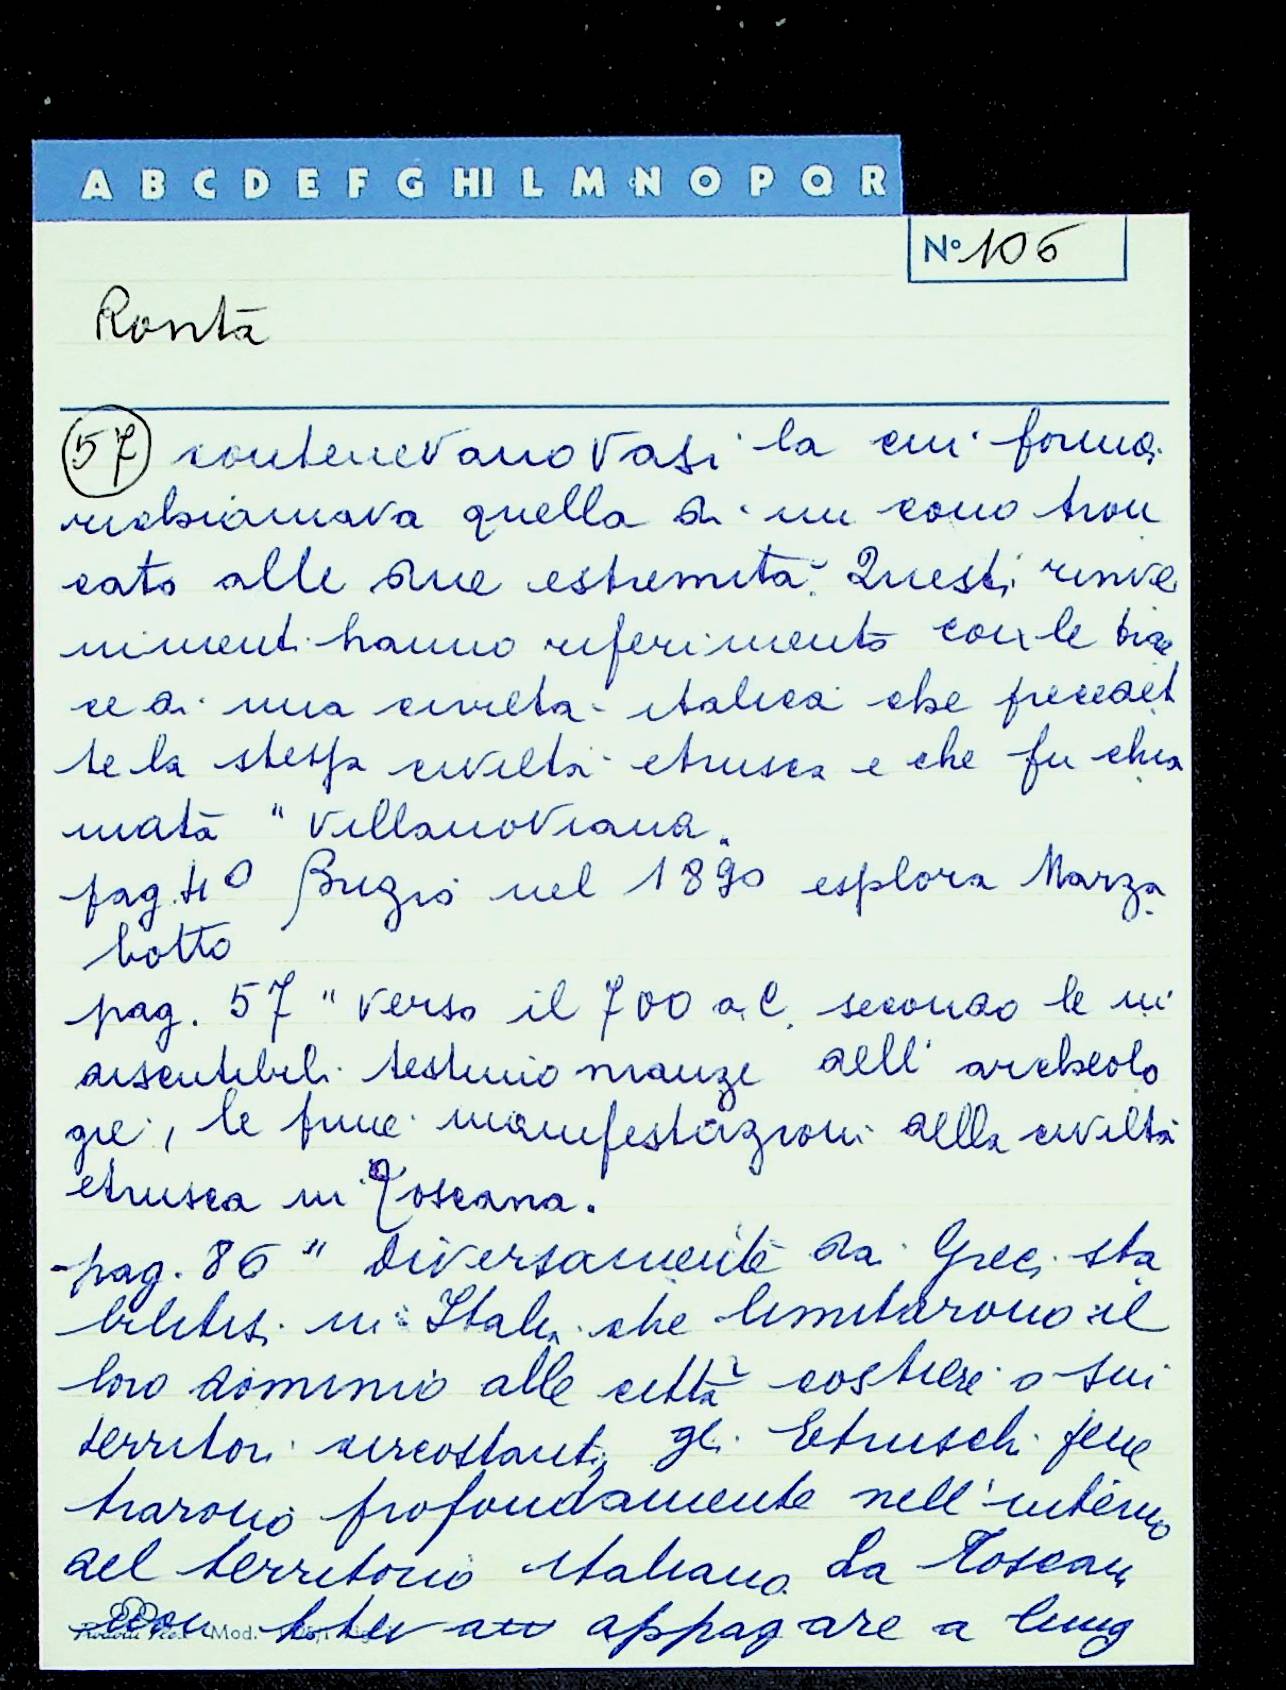 A B C D E F G HI L M N O P Q R
N° 106
Rontà
57 contenevano vasi la cui forma
richiamava quella di un cono tron
cato alle due estremità. Questi rinve
nimenti hanno riferimento con le trac
ce di una civiltà italica che precedet
te la stessa civiltà etrusca e che fu chia
mata " Villanoviana.
pag. 40 Brizio nel 1890 esplora Marza
botto
pag. 57 " verso il 700 a.C. secondo le in
discutibili testimonianze dell' archeolo
gia, le prime manifestazioni della civiltà
etrusca in Toscana.
- pag. 86 " Diversamente dai Greci sta
bilitisi in Italia che limitarono il
loro dominio alle città costiere o sui
territori circostanti, gli Etruschi pene
trarono profondamente nell' interno
del territorio italiano. La Toscana
non appagare a lung
Mod.